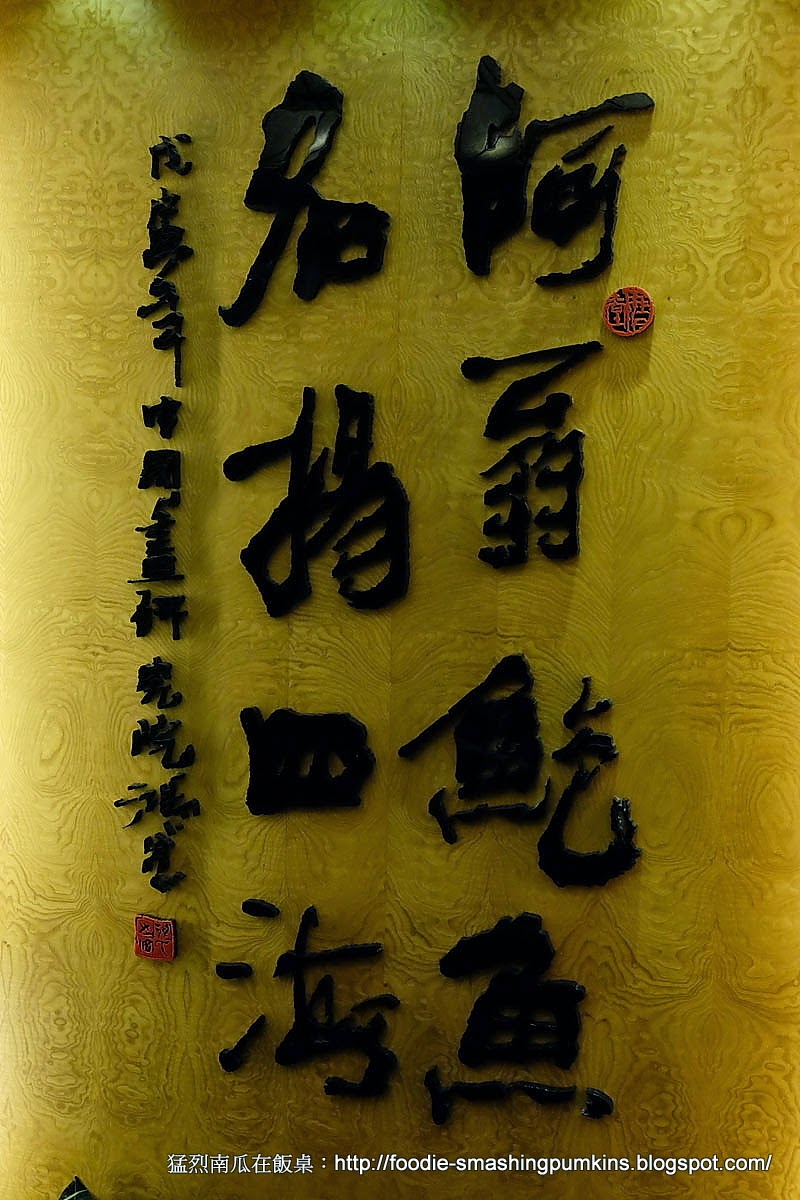 阿翁鮑魚
名揚四海
戊寅年中国畫研究院
猛烈南瓜在飯桌：http://foodie-smashingpumkins.blogspot.com/